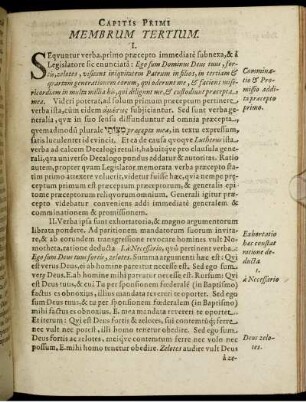 CAPITIS PRIMI
MEMBRUM TERTIUM.
I.
SEqvuntur verba, primo præcepto immediatè subnexa, & à
Legislatore sic enunciata: Ego sum Dominus Deus tuus, for-
tis, zelotes, visitans iniquitatem Patrum in filios, in tertiam &
quartam generationem eorum, qui oderunt me, & faciens mise-
ricordiam in multa millia his, qui diligunt me & custodiunt præcepta
mea. Videri poterat, ad solum primum præceptum pertinere
verba illa, cum eidem subjiciantur. Sed sunt verba ge-
neralia, quæ in suo sensu diffunduntur ad omnia præcepta,
qvemadmodum plurale מצותי præcepta mea, in textu expressum,
satis luculenter id evincit. Et ea de causa quoque Lutherus illa
verba ad calcem Decalogi retulit, habuitque pro clausula gene-
rali, qua universo Decalogo pondus addatur & autoritas. Ratio
autem, propter quam Legislator memorata verba præcepto sta-
tim primo attexere voluerit, videtur fuisse hæc, quod præceptum
primum sit præceptum præceptorum, & generalis epi-
tome præceptorum reliquorum omnium. Generali igitur præ-
cepto vtique conveniens addi immediatè generalem &
comminationem & promissionem.
II. Verba ipsa sunt exhortatoria, & magno argumentorum
librata pondere. Ad patitionem mandatorum suorum invita-
re, & ab eorundem transgressione revocare homines vult No-
motheta, ratione deducta I. à Necessario, quò pertinent verba:
Ego sum Deus tuus fortis, zelotes. Summa argumenti hæc est: Qui
est verus Deus, ei ab homine parendum est necessariò. Sed ego sum
verus Deus. E. ab homine mihi parendum est necessariò. Rursum: Qui
est Deus tuus, & cui Tu per sponsionem fœderalem (in Baptismo)
factus es obnoxius, illius mandata reverteri utique oportet. Sed
ego sum Deus tuus, & tu homo per sponsionem (in Baptismo)
mihi factus es obnoxius. E. mea mandata revereri te oportet.
Et iterum: Qui est Deus fortis & zelotes, sui contemtum ferre
nec vult, nec potest, illi homo tenetur obedire. Sed ego sum
Deus, fortis & zelotes. Sui contemtum ferre nec volo nec
possum, E. mihi homo tenetur obedire. Zelotes audire vult Deus
à ze-
Commina-
tio & Pro-
missio addi-
ta præcepto
primo.
Exhortatio
hæc constat
ratione de-
ducta
1.
à Necessario
Deus zelo-
tes.